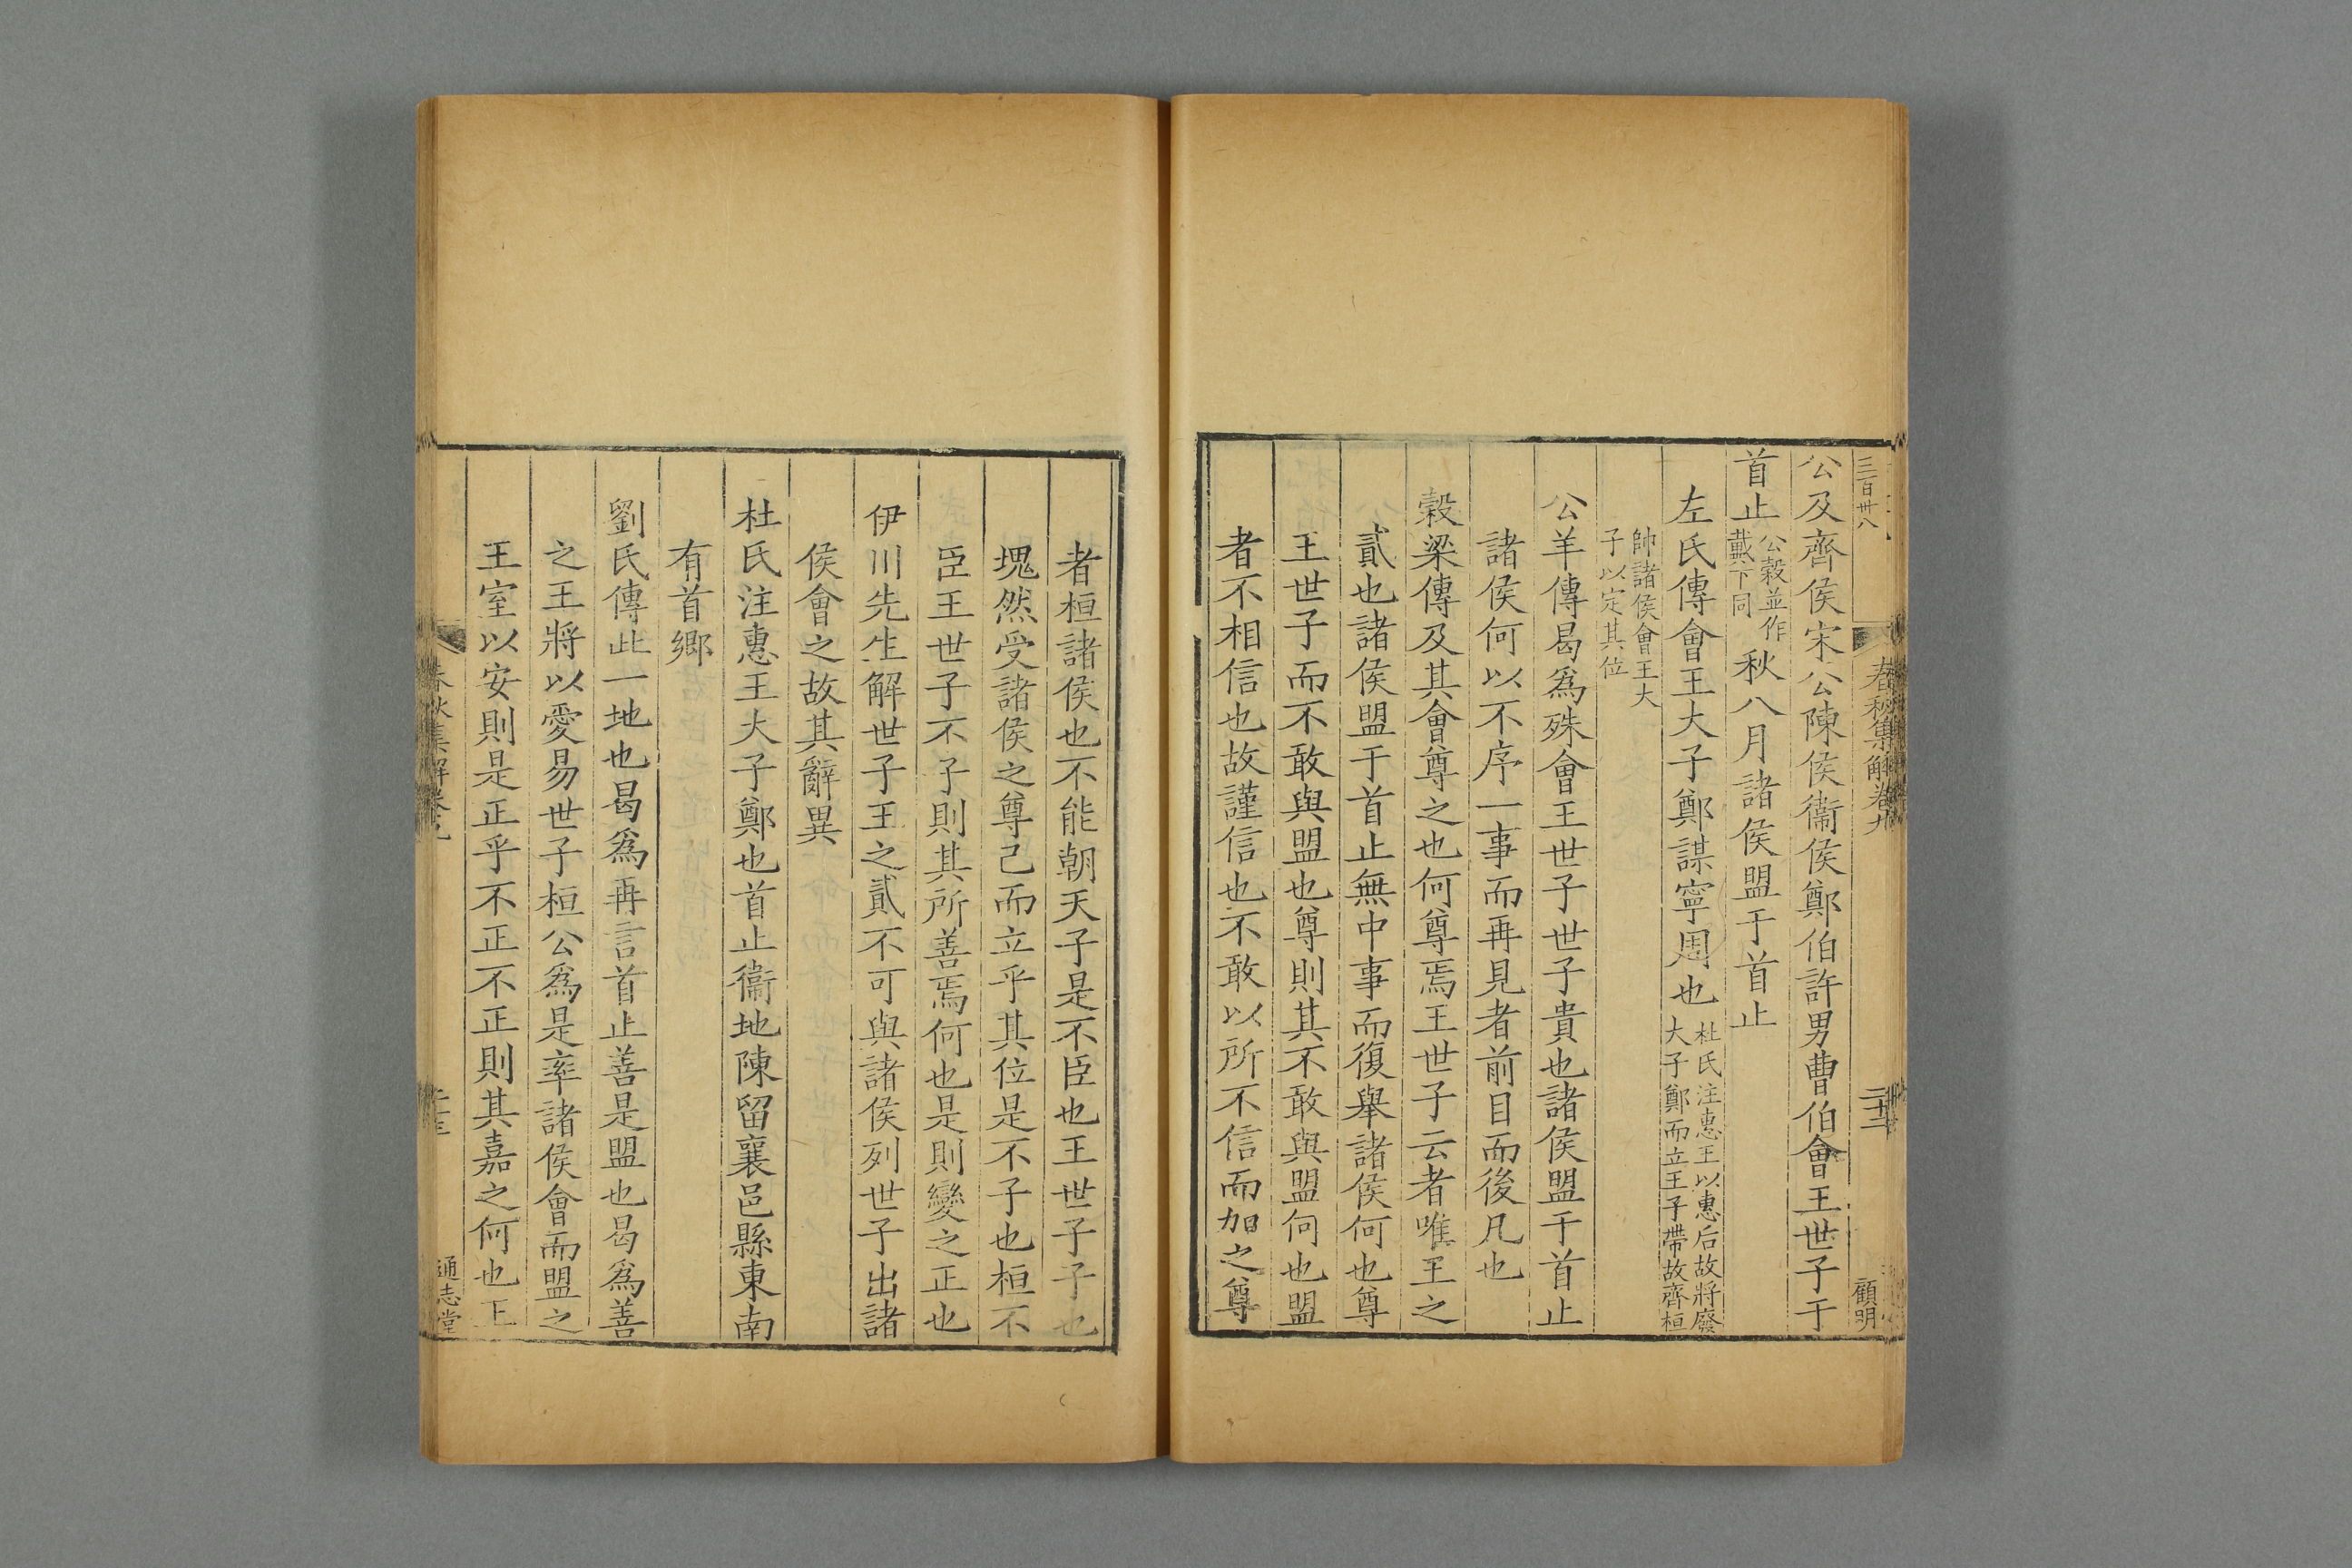 三百卅八
春秋集解卷九
二十三
顧明
公及齊侯宋公陳侯衞侯鄭伯許男曹伯會王世子于
首止
公穀並作
戴下同
秋八月諸侯盟于首止
左氏傳會王大子鄭謀寧周也
杜氏注惠王以惠后故將廢
大子鄭而立王子帶故齊桓
帥諸侯會王大
子以定其位
公羊傳曷爲殊會王世子世子貴也諸侯盟于首止
諸侯何以不序一事而再見者前目而後凡也
穀梁傳及其會尊之也何尊焉王世子云者唯王之
貳也諸侯盟于首止無中事而復舉諸侯何也尊
王世子而不敢與盟也尊則其不敢與盟何也盟
者不相信也故謹信也不敢以所不信而加之尊
者桓諸侯也不能朝天子是不臣也王世子子也
塊然受諸侯之尊己而立乎其位是不子也桓不
臣王世子不子則其所善焉何也是則變之正也
伊川先生解世子王之貳不可與諸侯列世子出諸
侯會之故其辭異
杜氏注惠王大子鄭也首止衞地陳留襄邑縣東南
有首鄉
劉氏傳此一地也曷爲再言首止善是盟也曷爲善
之王將以愛易世子桓公爲是率諸侯會而盟之
王室以安則是正乎不正不正則其嘉之何也王
春秋集解卷九
通志堂